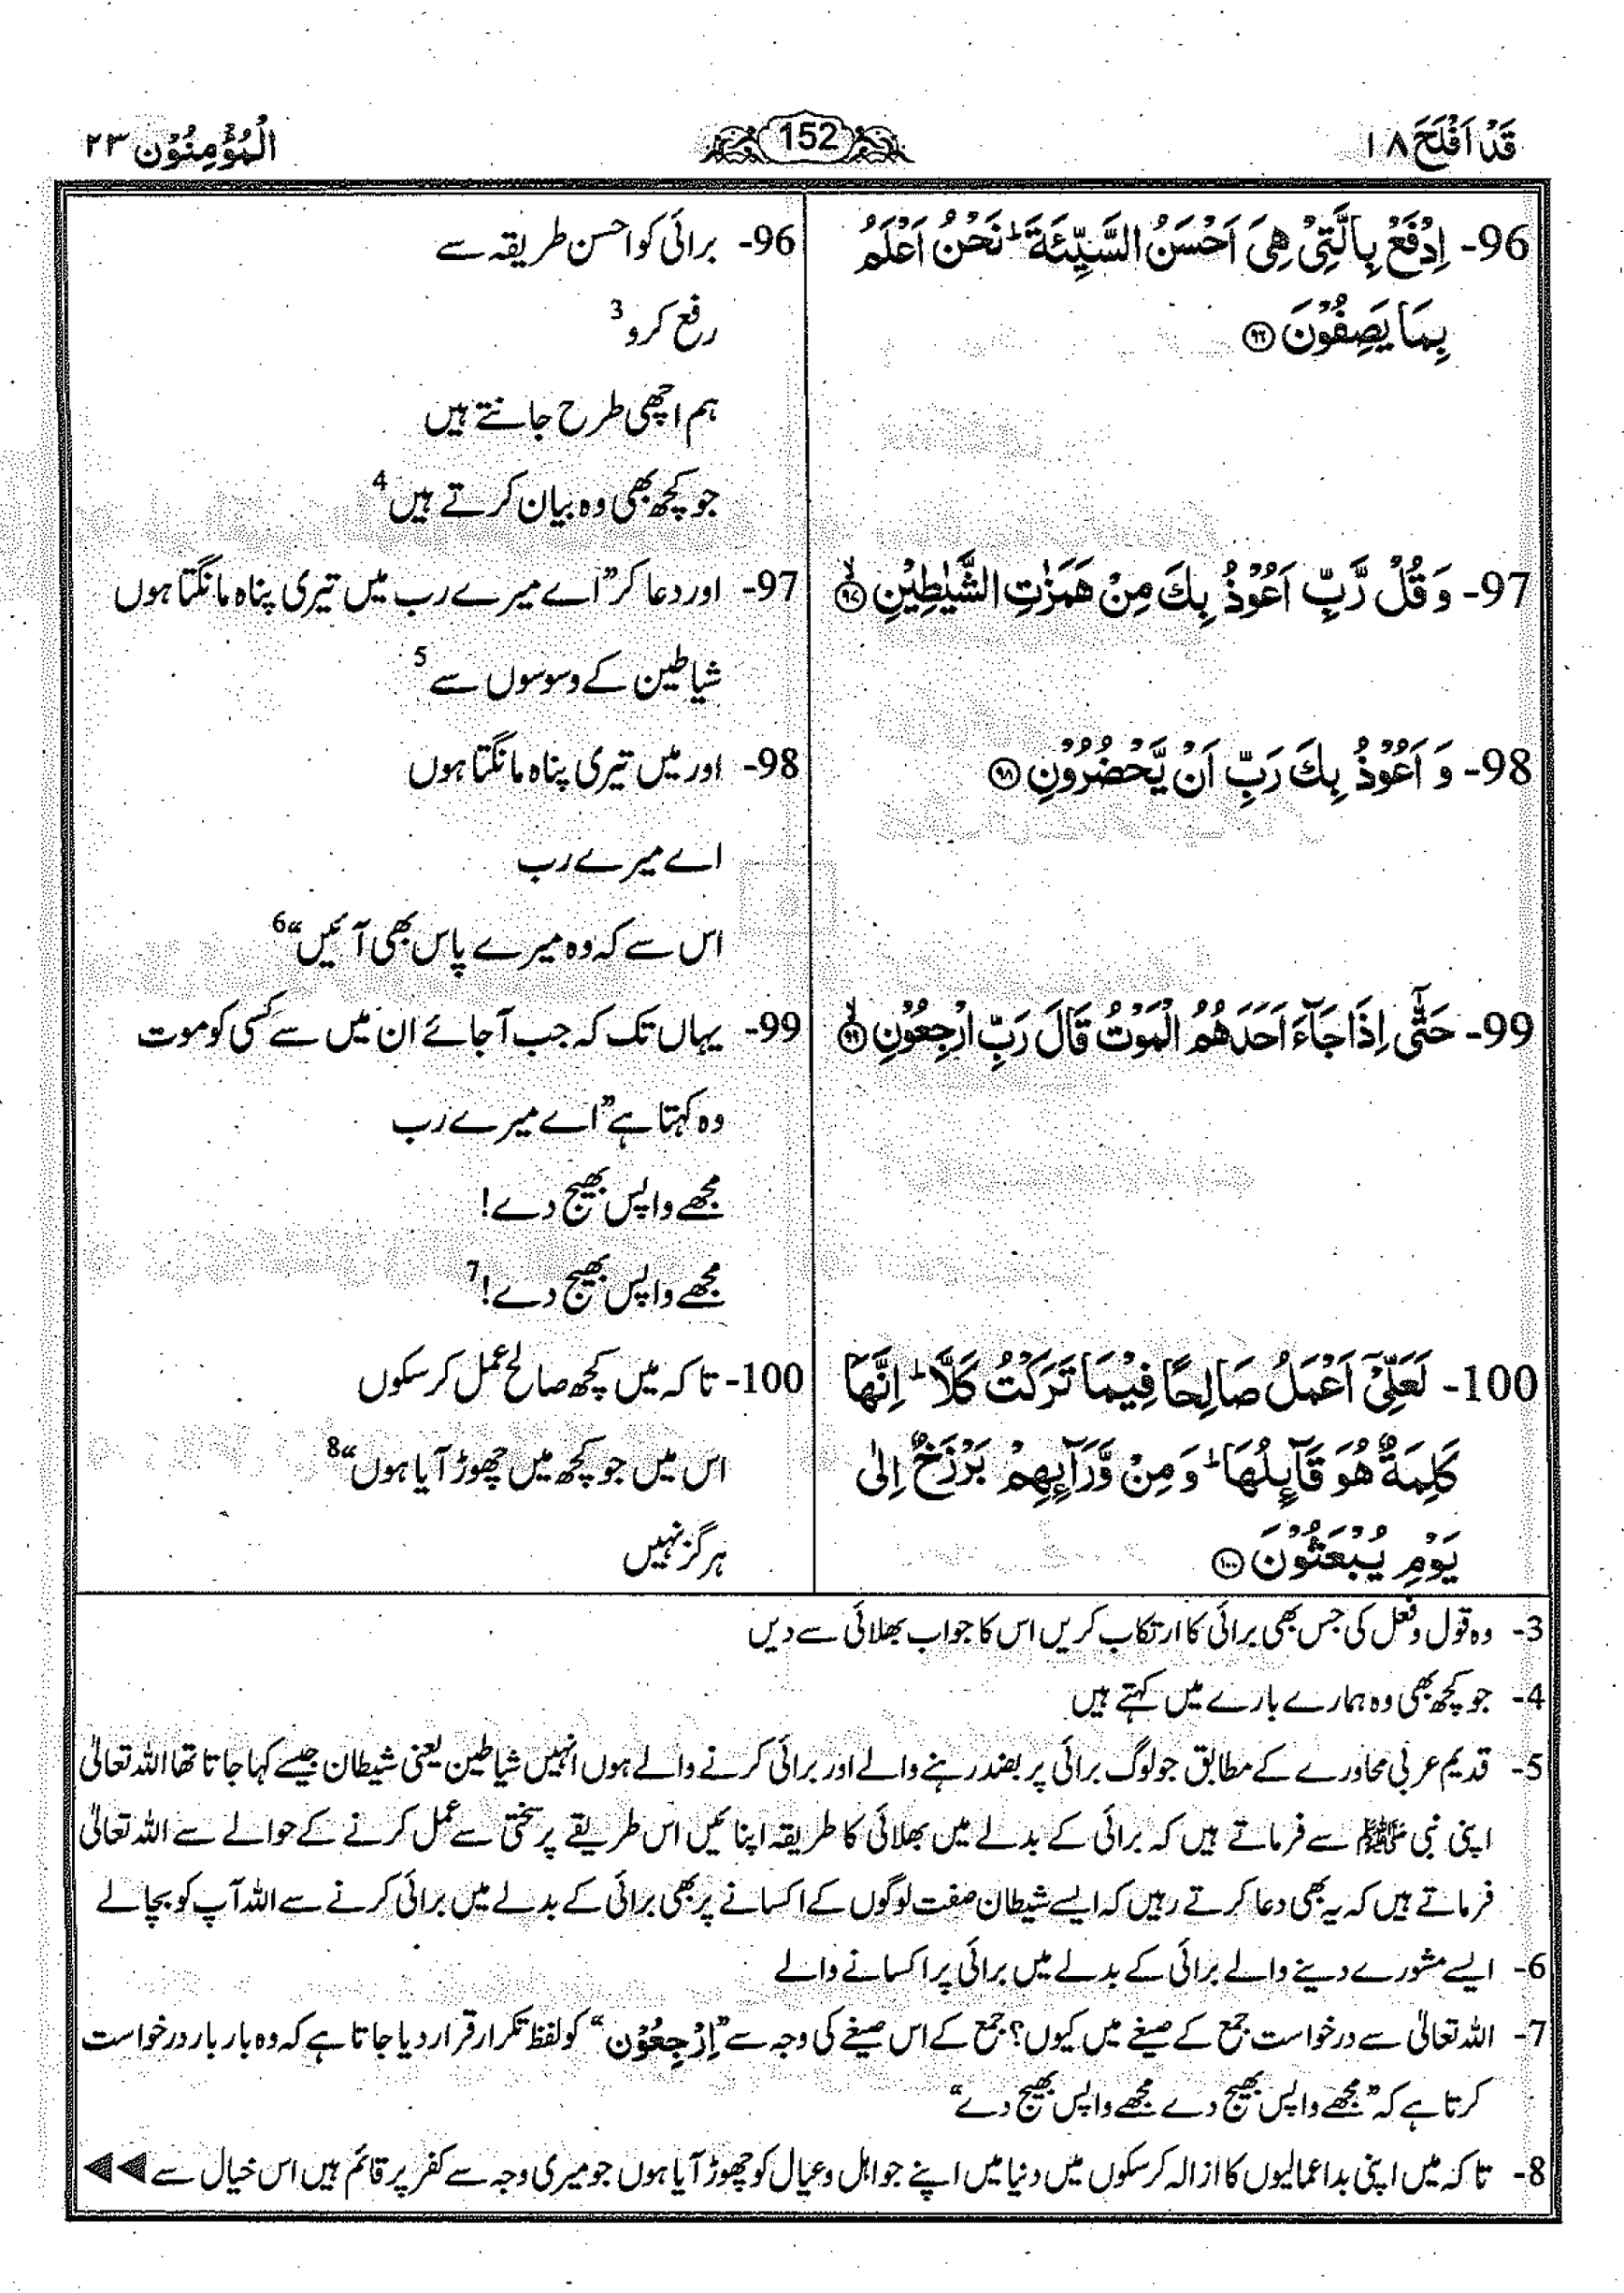 قَدْ اَفْلَحَ ۱۸
152
الْمُؤْمِنُوْن ۲۳
96- اِدْفَعْ بِالَّتِيْ هِيَ اَحْسَنُ السَّيِّئَةَ ؕ نَحْنُ اَعْلَمُ
بِمَا يَصِفُوْنَ ﴿۹۶﴾
97- وَ قُلْ رَّبِّ اَعُوْذُ بِكَ مِنْ هَمَزٰتِ الشَّيٰطِيْنِ ۙ﴿۹۷﴾
98- وَ اَعُوْذُ بِكَ رَبِّ اَنْ يَّحْضُرُوْنِ ﴿۹۸﴾
99- حَتّٰۤى اِذَا جَآءَ اَحَدَهُمُ الْمَوْتُ قَالَ رَبِّ ارْجِعُوْنِ ۙ﴿۹۹﴾
100- لَعَلِّيْۤ اَعْمَلُ صَالِحًا فِيْمَا تَرَكْتُ كَلَّا ؕ اِنَّهَا
كَلِمَةٌ هُوَ قَآىِٕلُهَا ؕ وَ مِنْ وَّرَآىِٕهِمْ بَرْزَخٌ اِلٰى
يَوْمِ يُبْعَثُوْنَ ﴿۱۰۰﴾
96- برائی کو احسن طریقہ سے
رفع کرو3
ہم اچھی طرح جانتے ہیں
جو کچھ بھی وہ بیان کرتے ہیں4
97- اور دعا کر ”اے میرے رب میں تیری پناہ مانگتا ہوں
شیاطین کے وسوسوں سے5
98- اور میں تیری پناہ مانگتا ہوں
اے میرے رب
اس سے کہ وہ میرے پاس بھی آئیں“6
99- یہاں تک کہ جب آ جائے ان میں سے کسی کو موت
وہ کہتا ہے ”اے میرے رب
مجھے واپس بھیج دے!
مجھے واپس بھیج دے!7
100- تا کہ میں کچھ صالح عمل کر سکوں
اس میں جو کچھ میں چھوڑ آیا ہوں“8
ہرگز نہیں
3- وہ قول و فعل کی جس بھی برائی کا ارتکاب کریں اس کا جواب بھلائی سے دیں
4- جو کچھ بھی وہ ہمارے بارے میں کہتے ہیں
5- قدیم عربی محاورے کے مطابق جو لوگ برائی پر بضد رہنے والے اور برائی کرنے والے ہوں انہیں شیاطین یعنی شیطان جیسے کہا جاتا تھا اللہ تعالیٰ
اپنی نبی ﷺ سے فرماتے ہیں کہ برائی کے بدلے میں بھلائی کا طریقہ اپنائیں اس طریقے پر سختی سے عمل کرنے کے حوالے سے اللہ تعالیٰ
فرماتے ہیں کہ یہ بھی دعا کرتے رہیں کہ ایسے شیطان صفت لوگوں کے اکسانے پر بھی برائی کے بدلے میں برائی کرنے سے اللہ آپ کو بچالے
6- ایسے مشورے دینے والے برائی کے بدلے میں برائی پر اکسانے والے
7- اللہ تعالیٰ سے درخواست جمع کے صیغے میں کیوں؟ جمع کے اس صیغے کی وجہ سے ”اِرْجِعُوْن“ کو لفظ تکرار قرار دیا جاتا ہے کہ وہ بار بار درخواست
کرتا ہے کہ ”مجھے واپس بھیج دے مجھے واپس بھیج دے“
8- تا کہ میں اپنی بداعمالیوں کا ازالہ کر سکوں میں دنیا میں اپنے جو اہل و عیال کو چھوڑ آیا ہوں جو میری وجہ سے کفر پر قائم ہیں اس خیال سے ◄◄